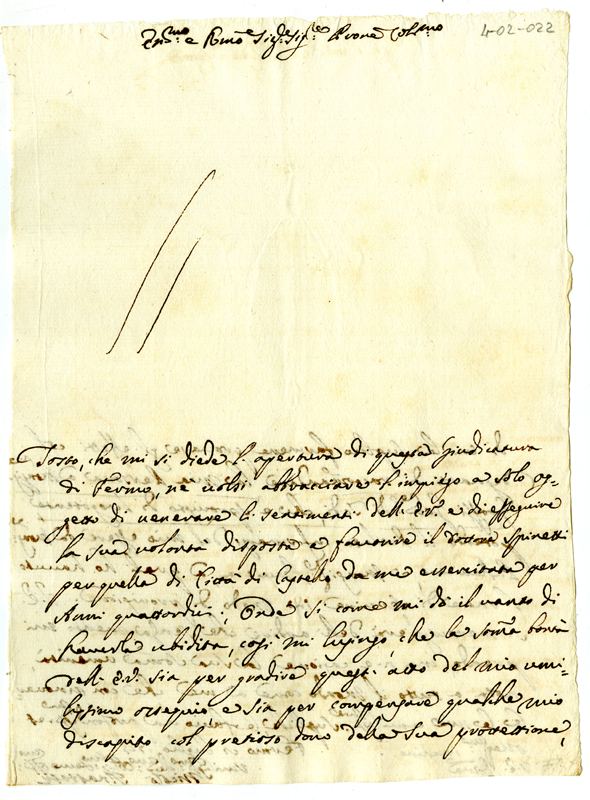 Em.mo e Rmo Sig.re Sig.re Prone Col.mo
4-02-022
Tosto, che mi si diede l'apertura di questa Giudicatura
di Fermo, ne volsi abbracciare l'impiego a solo og=
getto di venerare li sentimenti dell'E.V. e di esseguire
la sua volontà disposta a favorire il Dottore Spinetti
per quella di Città di Castello da me essercitata per
Anni quattordici; Onde si come mi dò il vanto di
haverla ubidita, così mi lusingo, che la somã bontà
dell'E.V. sia per gradire quest'atto del mio umi=
lissimo ossequio e sia per compensare qualche mio
discapito col pretioso dono della sua protettione,